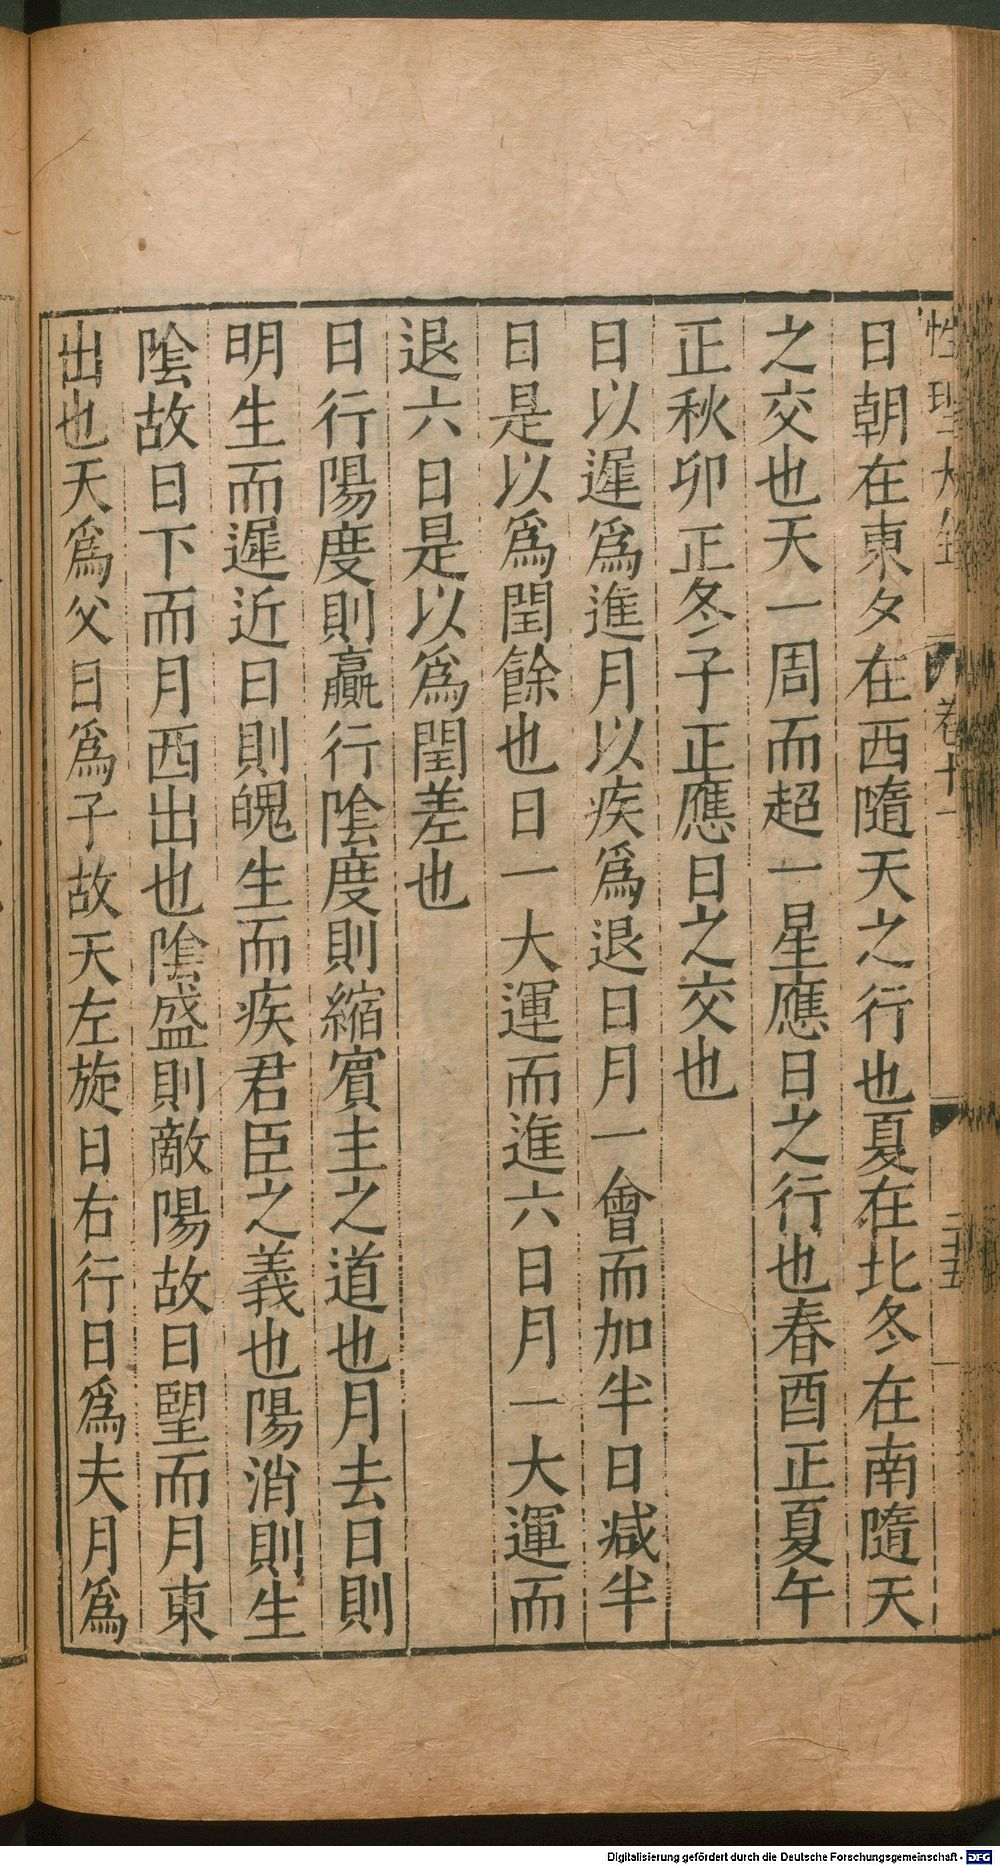 性理大全 卷十一 二十五
日朝在東夕在西隨天之行也夏在北冬在南隨天
之交也天一周而超一星應日之行也春酉正夏午
正秋卯正冬子正應日之交也
日以遲爲進月以疾爲退日月一會而加半日减半
日是以爲閏餘也日一大運而進六日月一大運而
退六日是以爲閏差也
日行陽度則贏行陰度則縮賓主之道也月去日則
明生而遲近日則魄生而疾君臣之義也陽消則生
陰故日下而月西出也陰盛則敵陽故日望而月東
出也天爲父日爲子故天左旋日右行日爲夫月爲
Digitalisierung gefördert durch die Deutsche Forschungsgemeinschaft - DFG